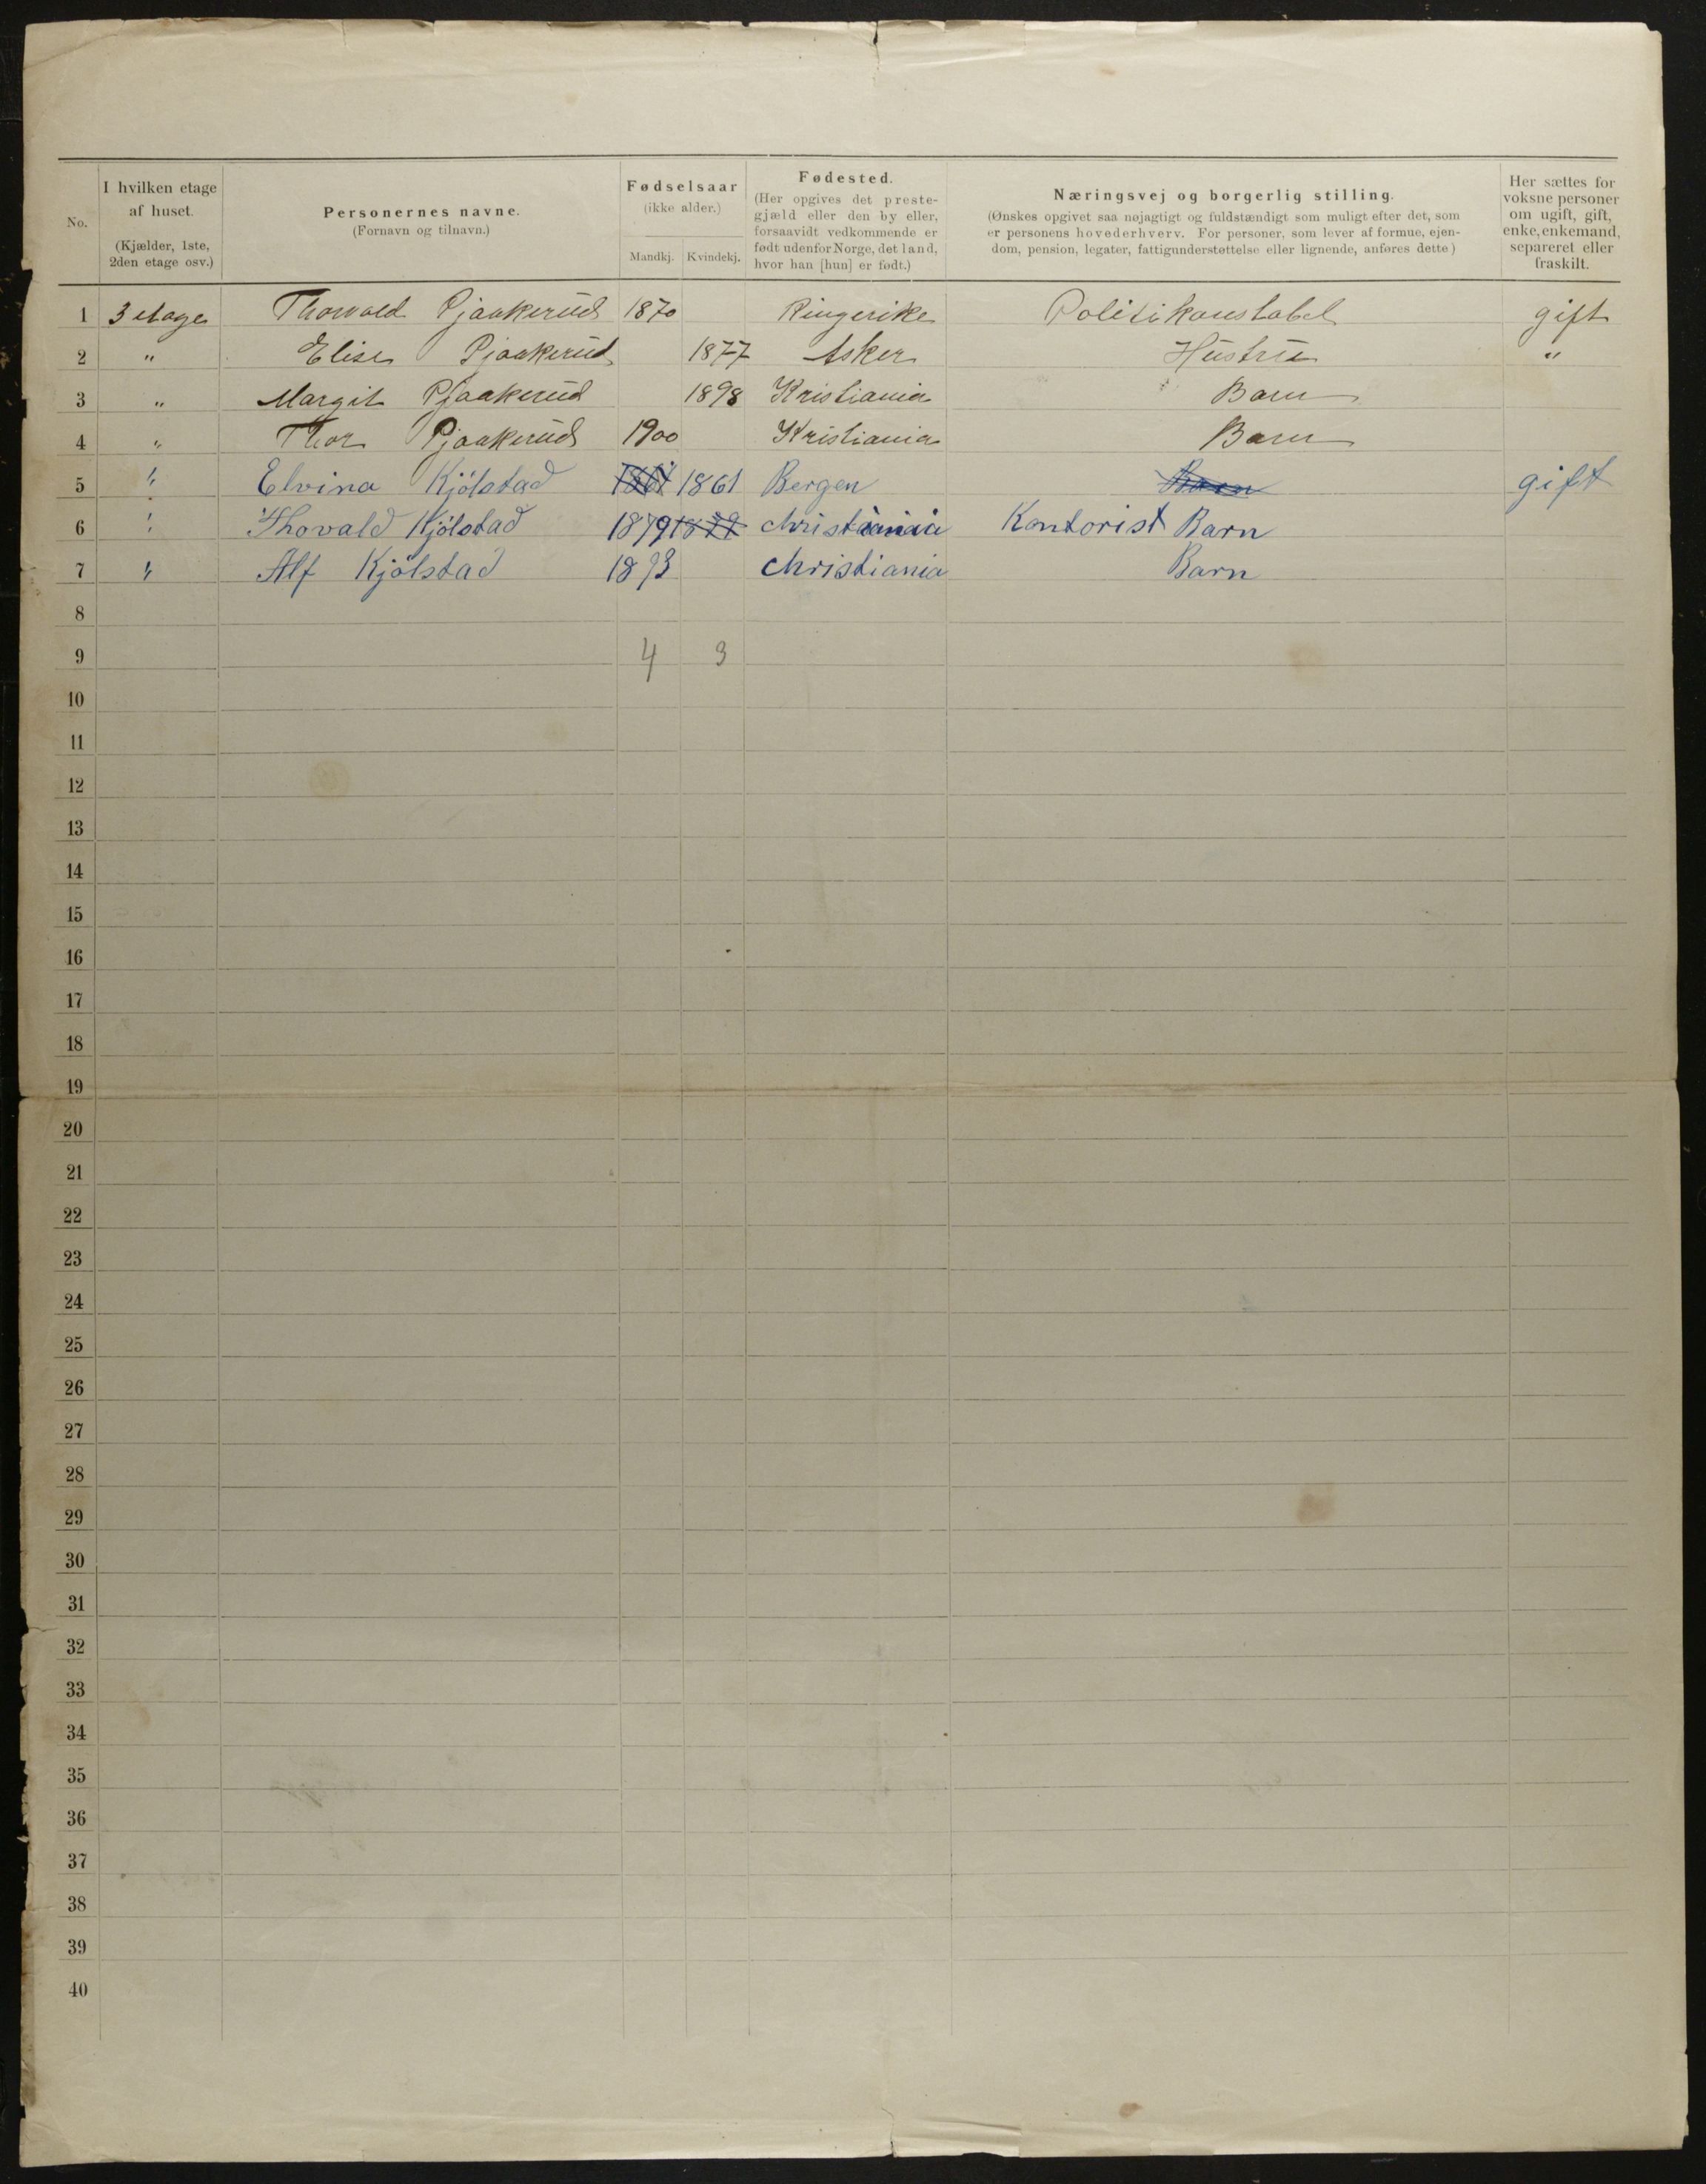 No.
I hvilken etage af huset.
(Kjælder, 1ste, 2den etage osv.)
Personernes navne.
(Fornavn og tilnavn.)
Fødselsaar
(ikke alder.)
Mandkj. Kvindekj.
Fødested.
(Her opgives det prestegjæld eller den by eller, forsaavidt vedkommende er født udenfor Norge, det land, hvor han [hun] er født.)
Næringsvej og borgerlig stilling.
(Ønskes opgivet saa nøjagtigt og fuldstændigt som muligt efter det, som er personens hovederhverv. For personer, som lever af formue, ejendom, pension, legater, fattigunderstøttelse eller lignende, anføres dette)
Her sættes for voksne personer om ugift, gift, enke, enkemand, separeret eller fraskilt.
1 3 etage Thorvald Pjaakerud 1870 Ringerike Politikonstabel gift
2 " Elise Pjaakerud 1877 Asker Hustru "
3 " Margit Pjaakerud 1898 Kristiania Barn
4 " Thor Pjaakerud 1900 Kristiania Barn
5 " Elvina Kjölstad 1861 1861 Bergen Barn gift
6 " Thovald Kjölstad 1879 1879 Christiania Kontorist Barn
7 " Alf Kjölstad 1893 Christiania Barn
8
9 4 3
10
11
12
13
14
15
16
17
18
19
20
21
22
23
24
25
26
27
28
29
30
31
32
33
34
35
36
37
38
39
40